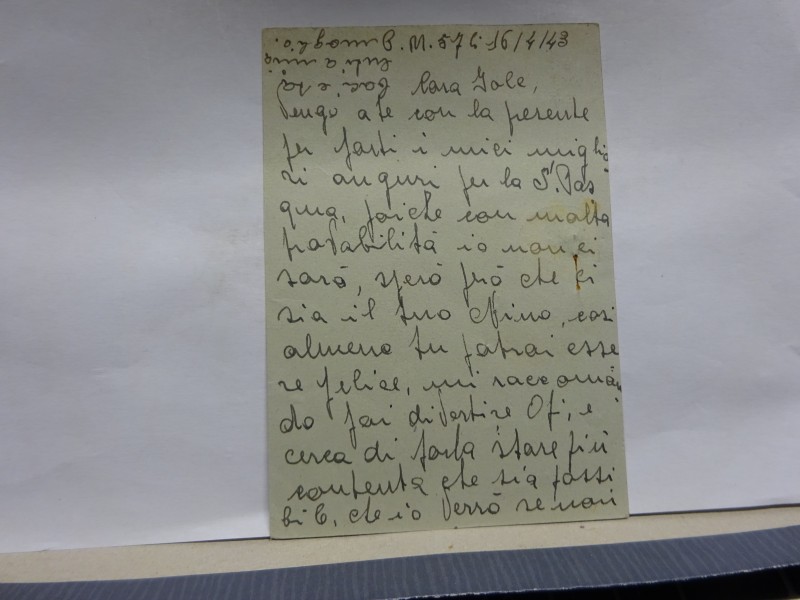 P. M. 576 16/4/43
Cara Iole,
Vengo a te con la presente
per farti i miei miglio
ri auguri per la S. Pas
qua, poiché con molta
probabilità io non ci
sarò, spero però che ci
sia il tuo Nino, così
almeno tu potrai esse
re felice, mi raccoman
do fai divertire Ofi, e
cerca di farla stare più
contenta che sia possi
bile, che io verrò se non
baci e sa
luti a mia